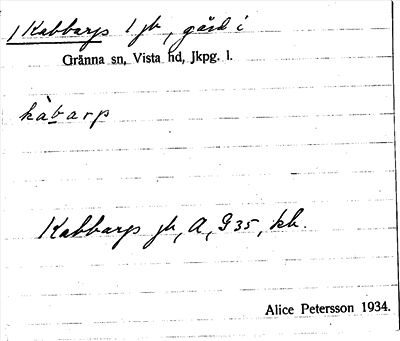 1 Kabbarp 1 jb, gård i
Gränna sn, Vista hd, Jkpg. l.
kàbarp
Kabbarp jb, A, G35, kb.
Alice Petersson 1934.